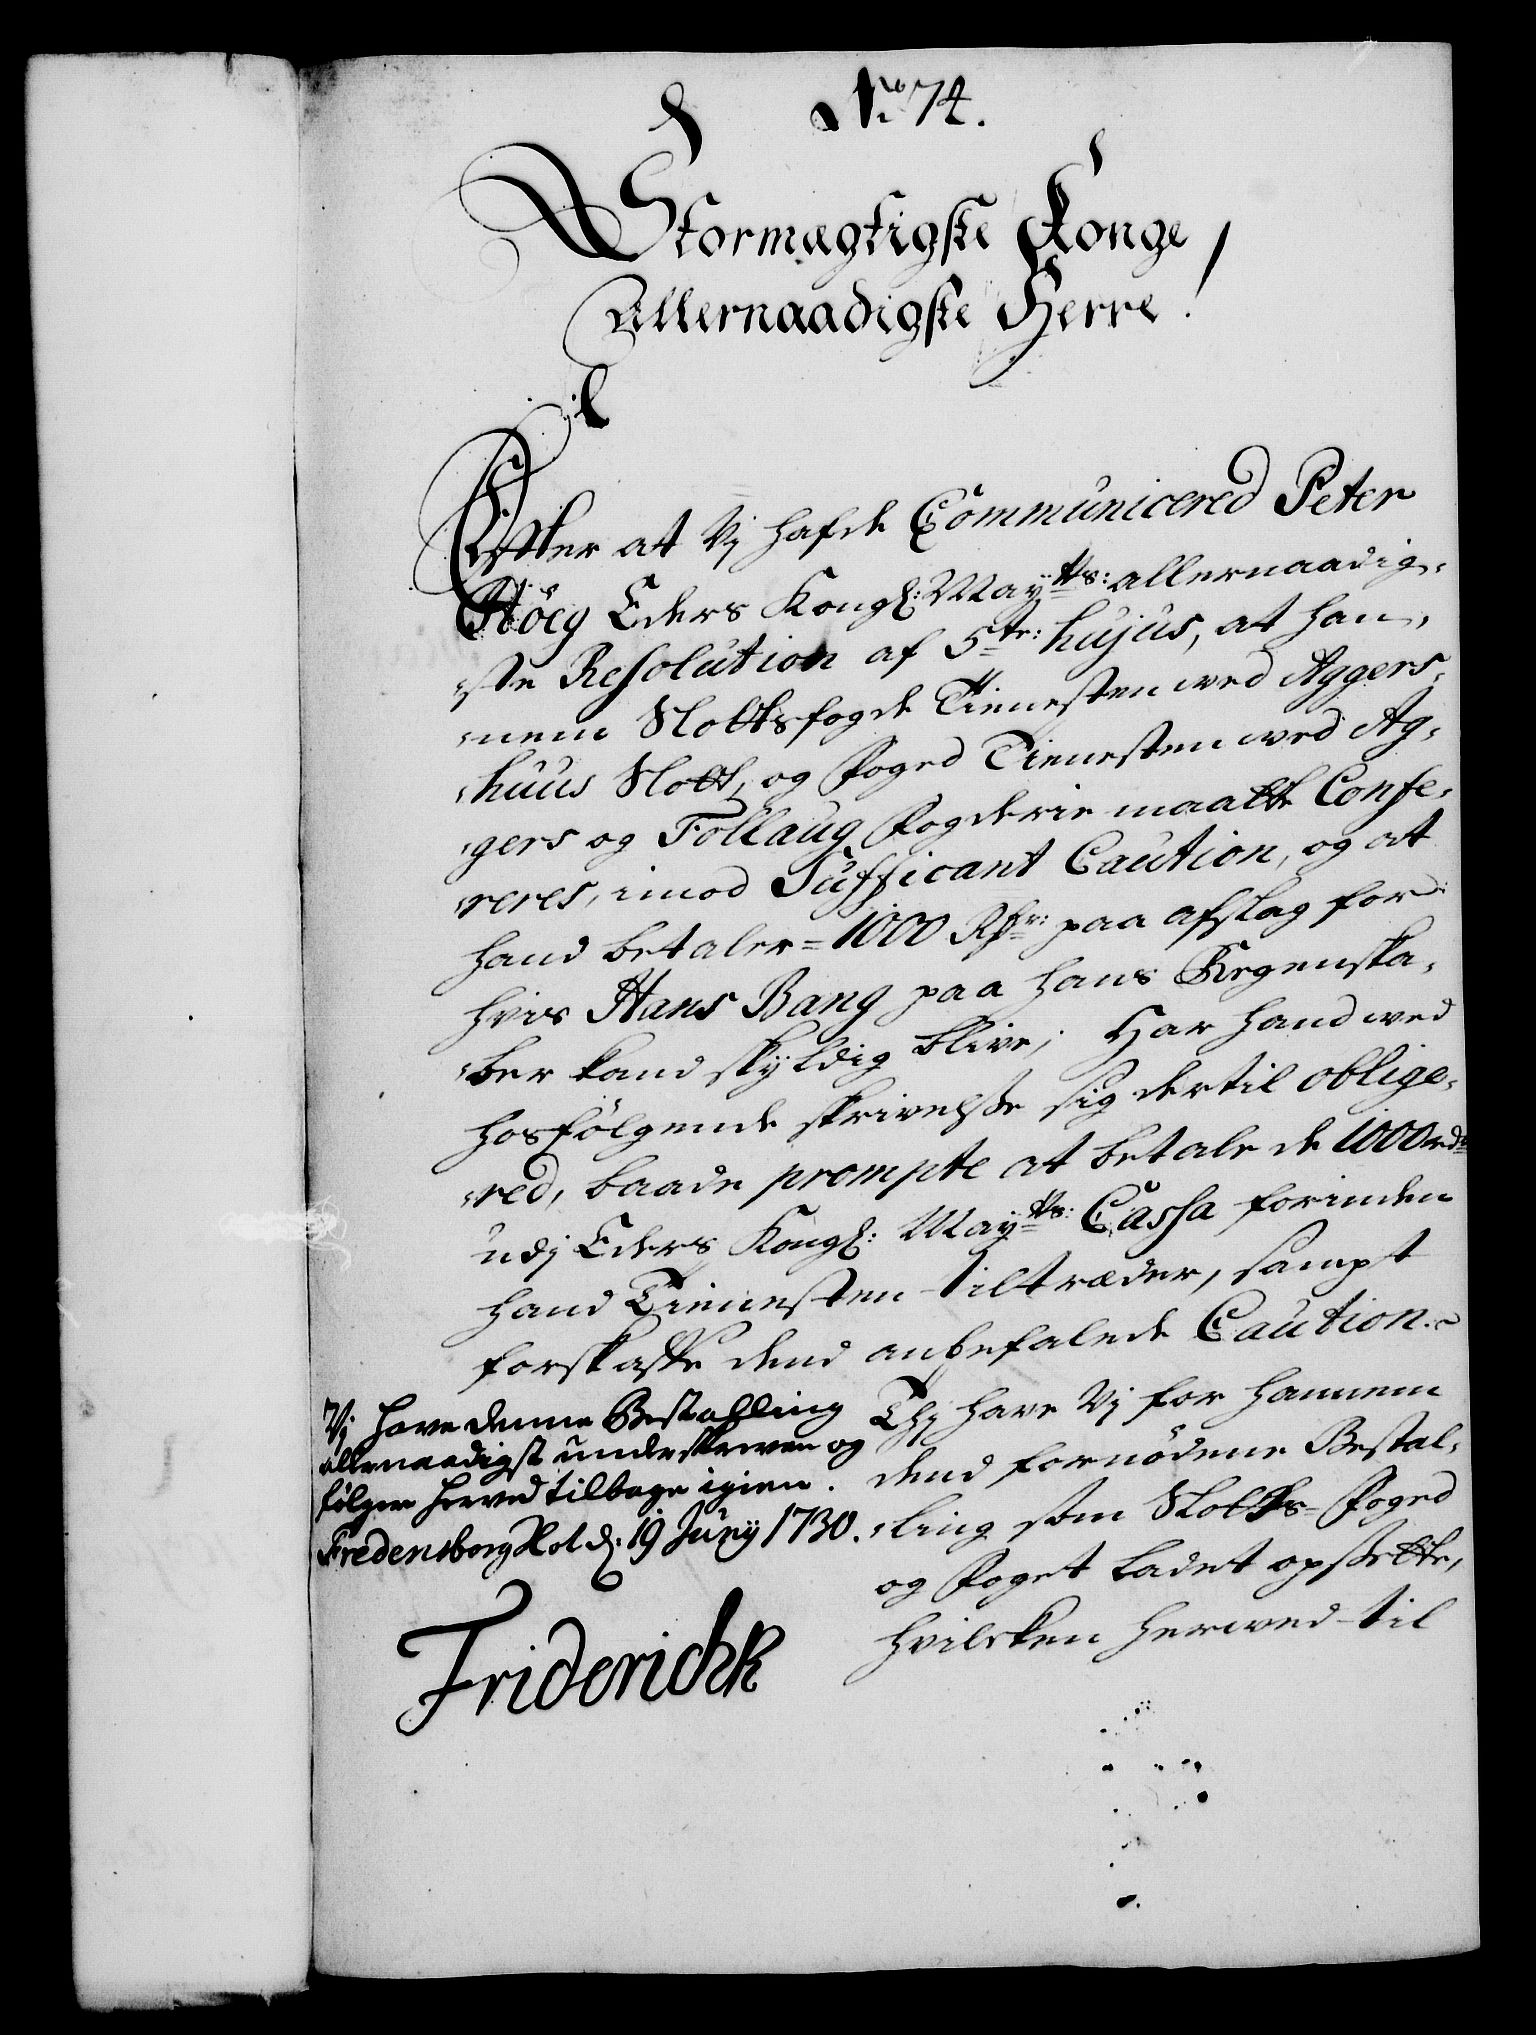 No 74.
Stormægtigste Konge
Allernaadigste Herre!
Efter at Vj hafde Communicered Peter
Höeg Eders Kongl: Mayts: allernaadig-
ste Resolution af 5te: hujus, at han-
nem Slottsfogde Tienesten ved Aggers-
huus Slott, og Foged Tienesten ved Ag-
gers og Follaug Fogderie maatte Confe-
reres, imod Sufficant Caution, og at
hand betaler 1000 Rdr: paa afslag for
hvis Hans Bang paa hans Regenska-
ber kand skyldig blive; Har hand ved
hosfölgende skrivelsse sig dertil oblige-
red, baade prompte at betale de 1000 rdr
udj Eders Kongl: Mayts: Cassa forinden
hand Tienesten tiltræder, sampt
forskaffe dend anbefalede Caution.
Thj have Vj for hannem
dend fornödene Bestal-
ling som Slotts-Foged
og Foget ladet opsette,
hvilcken herved til
Vj have denne Bestalling
allernaadigst underskreven og
fölger herved tilbage igien.
Fredensborg Slot d: 19 Junij 1730.
Friderich R